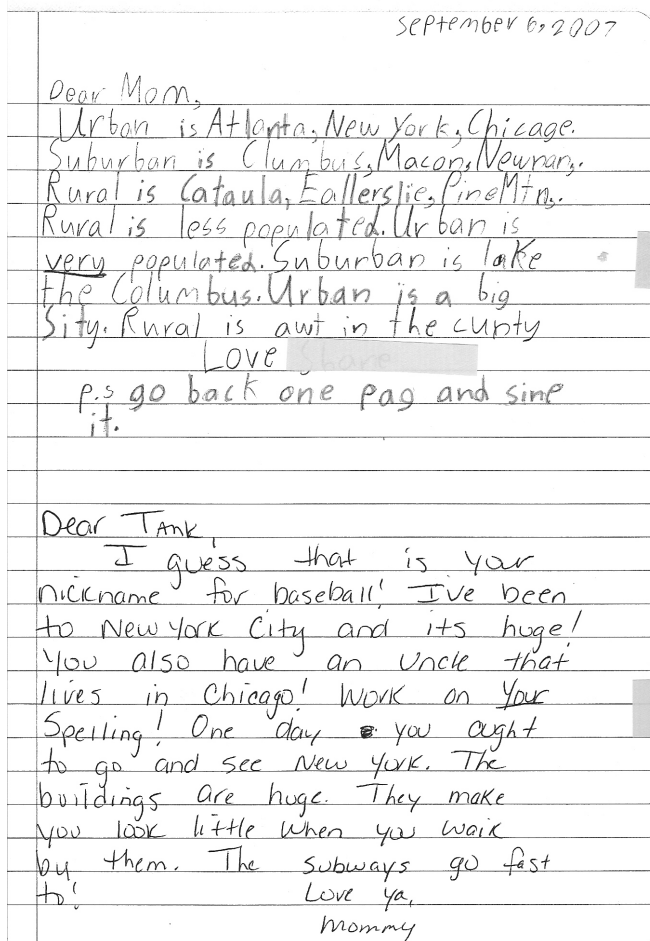 September 6, 2007
Dear Mom,
Urban is Atlanta, New York, Chicage.
Suburban is Clumbus, Macon, Newnan,.
Rural is Cataula, Eallerslie, Pine Mtn,.
Rural is less populated. Urban is
very populated. Suburban is lake
the Columbus. Urban is a big
Sity. Rural is awt in the cunty
Love Shane
p.s go back one pag and sine
it.
Dear Tank,
I guess that is your
nickname for baseball! I've been
to New York City and its huge!
You also have an uncle that
lives in Chicago! Work on your
Spelling! One day you ought
to go and see New York. The
buildings are huge. They make
you look little when you walk
by them. The subways go fast
to! Love ya,
Mommy